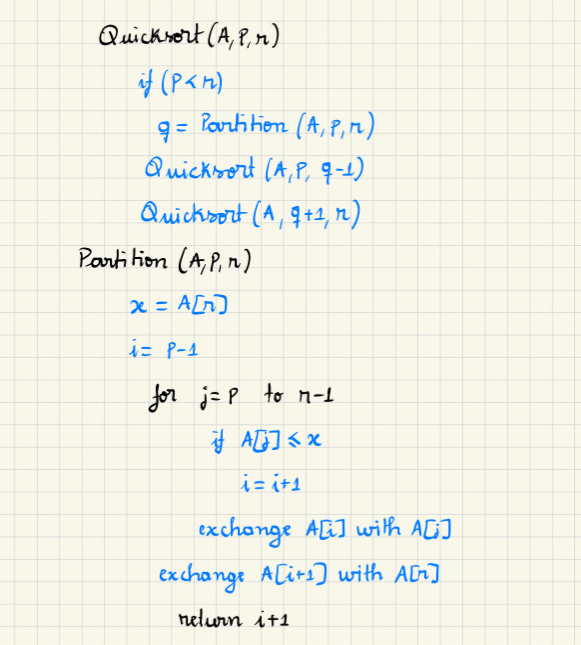 Quicksort (A, P, r)
if (P < r)
q = Partition (A, P, r)
Quicksort (A, P, q-1)
Quicksort (A, q+1, r)
Partition (A, P, r)
x = A[r]
i = P-1
for j = P to r-1
if A[j] ⩽ x
i = i+1
exchange A[i] with A[j]
exchange A[i+1] with A[r]
return i+1